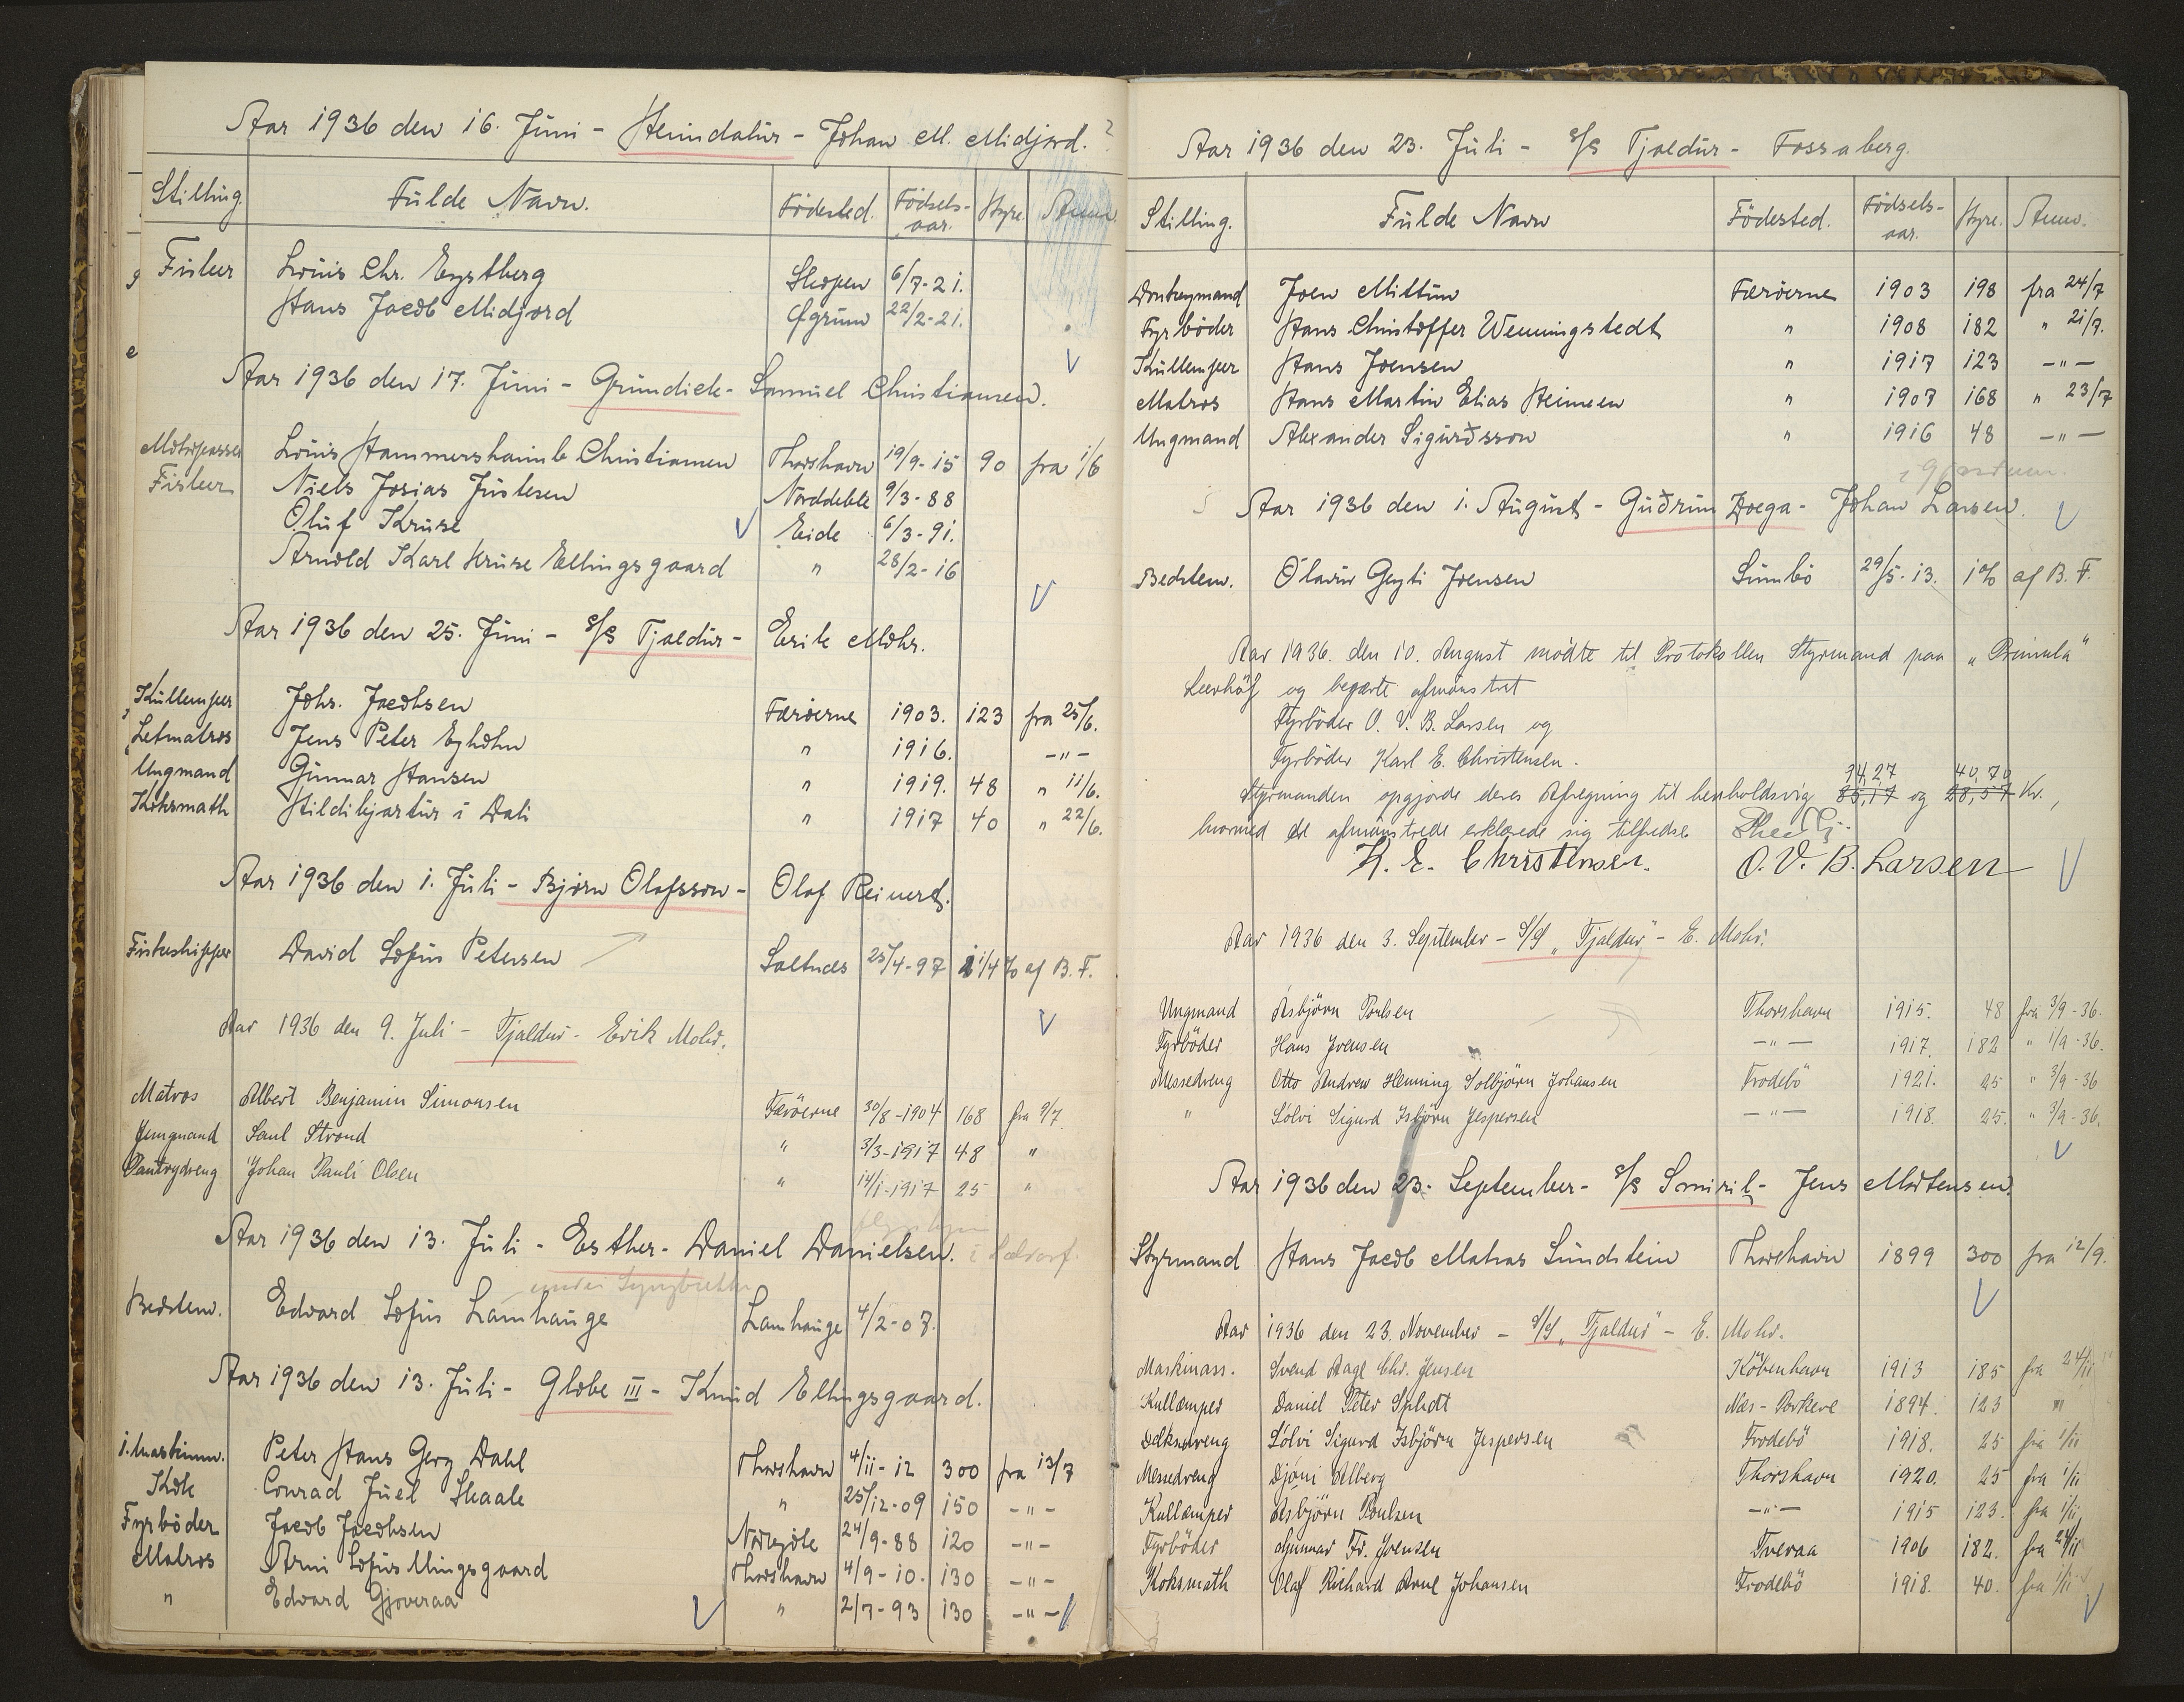 Aar 1936 den 16. Juni - Heimdalur - Johan M. Midjord.
Stilling. Fulde Navn. Födested. Födsels-aar. Hyre. Anm.
Fisker Louis Chr. Eystberg Skopen 6/7-21.
Hans Jacob Midjord Øgrum 22/2-21.
Aar 1936 den 17. Juni - Grundick - Samuel Christiansen.
Motorpasser Louis Hammershaimb Christiansen Thorshavn 19/9-15 90 fra 1/6
Fisker Niels Josias Justesen Norddeble 9/3-88
Oluf Kruse Eide 6/3-91.
Arnold Karl Kruse Ellingsgaard " 28/2-16
Aar 1936 den 25. Juni - s/s Tjaldur - Erik Mohr.
Kullemper Johs. Jacobsen Færøerne 1903. 123 fra 25/6.
Letmatros Jens Peter Eyholm " 1916. -"-
Ungmand Gunnar Hansen " 1919. 48 " 11/6.
Koksmath Hildibjartur i Dali " 1917 40 " 22/6.
Aar 1936 den 1. Juli - Björn Olafsson - Olaf Reinert.
Fiskeskipper David Sofus Petersen Saltnes 25/4-97 1 1/4 % af B. F.
Aar 1936 den 9. Juli - Tjaldur - Erik Mohr.
Matros Albert Benjamin Simonsen Færöerne 30/8-1904 168 fra 9/7
Jungmand Paul Strond " 3/3-1917 48 "
Pantrydreng Johan Pauli Olsen " 14/1-1917 25 "
Aar 1936 den 13. Juli - Esther - Daniel Danielsen.
Bedstem. Edvard Sofus Lamhauge Lamhauge 4/2-07.
Aar 1936 den 13. Juli - Globe III - Knud Ellingsgaard.
1. Maskinm. Peter Hans Gerg Dahl Thorshavn 4/11-12 300 fra 13/7
Kok Conrad Juel Skaale " 25/12-09 150 -"-
Fyrböder Jacob Jacobsen Norregöte 24/9-88 120 -"-
Matros Arni Sofus Ellingsgaard Thorshavn 4/9-10. 130 -"-
" Edvard Gjoveraa " 2/7-93 130 -"-
Aar 1936 den 23. Juli - s/s Tjaldur - Fossaberg.
Stilling. Fulde Navn Födested. Födsels-aar. Hyre. Anm.
Donkeymand Joen Mittun Færöerne 1903 198 fra 24/7
Fyrböder Hans Christoffer Wenningstedt " 1908 182 " 21/7.
Kullemper Hans Joensen " 1917 123 -"-
Matros Hans Martin Elias Heinesen " 1907 168 " 23/7
Ungmand Alexander Sigurðsson " 1916 48 -"-
Aar 1936 den 1. August - Guðrun Zoega - Johan Larsen.
Bedstem. Olavur Geyti Joensen Sumbö 29/5-13. 1% af B. F.
Aar 1936. den 10. August mödte til Protokollen Styrmand paa "Primula"
Leerhöj og begærte afmönstret
Fyrböder O. V. B. Larsen og
Fyrböder Karl E. Christensen.
94,27 40,70
Styrmanden opgjorde deres Afregning til henholdsvig 85,17 og 28,57 Kr.,
hvormed de afmönstrede erklærede sig tilfredse
K. E. Christensen. O. V. B. Larsen
Aar 1936 den 3. September - S/S "Tjaldur" - E. Mohr.
Ungmand Asbjörn Poulsen Thorshavn 1915. 48 fra 3/9-36.
Fyrböder Hans Joensen -"- 1917. 182 " 1/9-36.
Messedreng Otto Andrew Henning Solbjörn Johansen Frodebö 1921. 25 " 3/9-36
" Sölvi Sigurd Isbjörn Jespersen -"- 1918. 25. " 3/9-36.
Aar 1936 den 23. September - s/s Smiril - Jens Mortensen.
Styrmand Hans Jacob Matras Sundstein Thorshavn 1899 300 fra 12/9.
Aar 1936 den 23. November - S/S "Tjaldur" - E. Mohr.
Maskinass. Svend Aage Chr. Jensen Köbenhavn 1913 185 fra 24/11
Kullæmper Daniel Peter Splidt Nes - Porkere 1894. 123 "
Dæksdreng Sölvi Sigurd Isbjörn Jespersen Frodebö 1918. 25 fra 1/11
Messedreng Djoni Alberg Thorshavn 1920. 25 fra 1/11
Kullæmper Asbjörn Poulsen -"- 1915 123. fra 1/11
Fyrböder Gunnar Fr. Joensen Tveraa 1906 182. fra 24/11
Koksmath Olaf Richard Arne Johansen Frodebö 1918. 40. fra 1/11